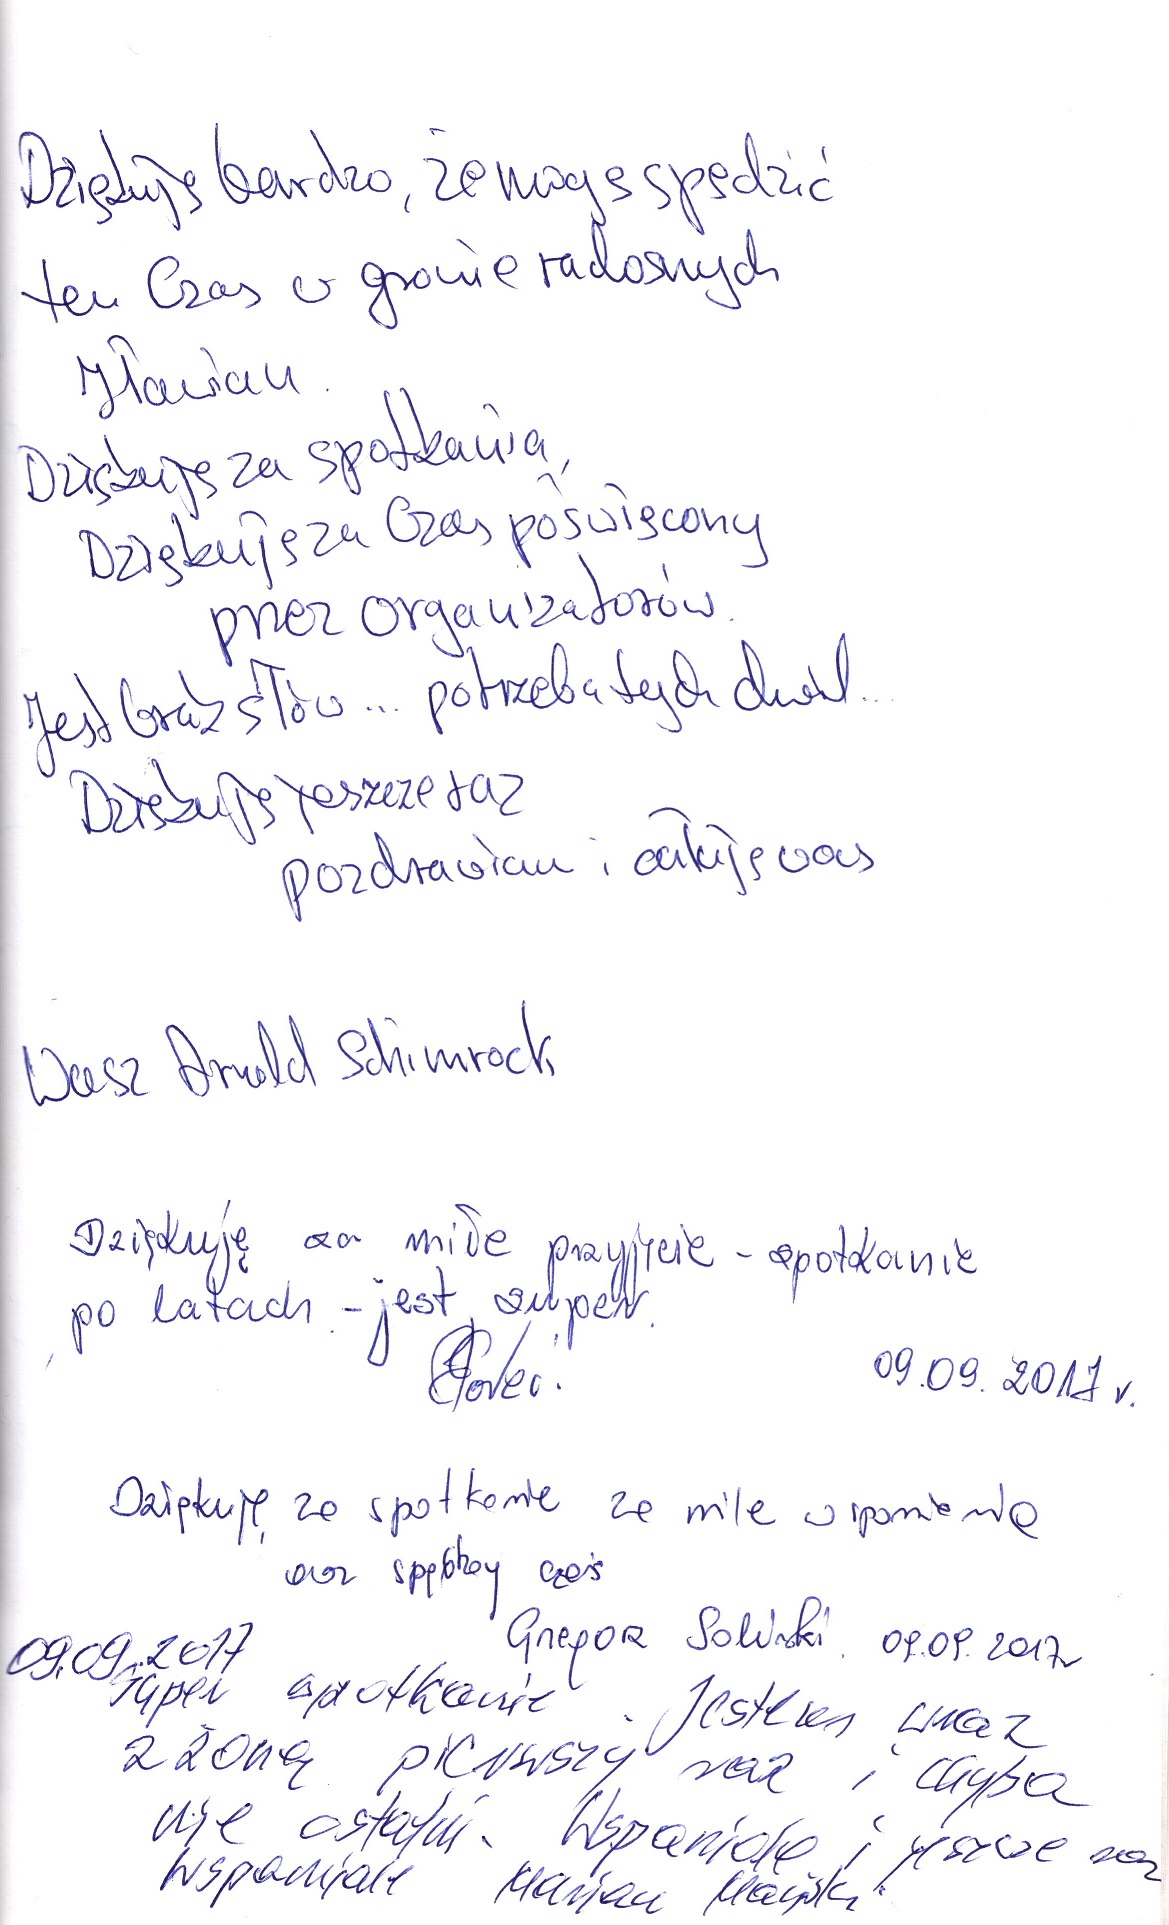 Dziękuję bardzo, że mogę spędzić
ten Czas w gronie radosnych
Iławian.
Dziękuję za spotkania,
Dziękuję za Czas poświęcony
przez organizatorów.
Jest brak słów... potrzeba tych chwil...
Dziękuję jeszcze raz
pozdrawiam i całuję was
Wasz Arnold Schimrock
Dziękuję za miłe przyjęcie - spotkanie
po latach - jest super.
09.09.2017 r.
Dziękuję za spotkanie za miłe wspomnienie
oraz spędzony czas
Gregor 09.09.2017
09.09.2017
Super spotkanie. Jestem wraz
z żoną pierwszy raz i chyba
nie ostatni. Wspaniale i jeszcze raz
Wspaniale Marian